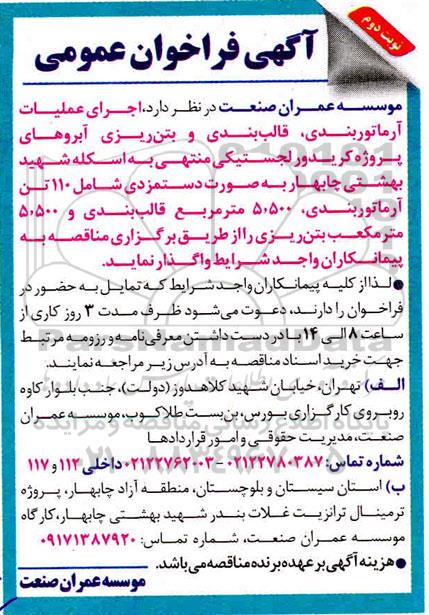 نوبت دوم
آگهی فراخوان عمومی
موسسه عمران صنعت در نظر دارد،اجرای عملیات
آرماتوربندی، قالب‌بندی و بتن‌ریزی آبروهای
پروژه کریدور لجستیکی منتهی به اسکله شهید
بهشتی چابهار به صورت دستمزدی شامل ۱۱۰ تن
آرماتوربندی، ۵،۵۰۰ مترمربع قالب‌بندی و ۵،۵۰۰
متر مکعب بتن‌ریزی را از طریق برگزاری مناقصه به
پیمانکاران واجد شرایط واگذار نماید.
● لذا از کلیه پیمانکاران واجد شرایط که تمایل به حضور در
فراخوان را دارند، دعوت می‌شود ظرف مدت ۳ روز کاری از
ساعت ۸ الی ۱۴ با در دست داشتن معرفی‌نامه و رزومه مرتبط
جهت خرید اسناد مناقصه به آدرس زیر مراجعه نمایند.
الف) تهران، خیابان شهید کلاهدوز (دولت)، جنب بلوار کاوه
روبروی کارگزاری بورس، بن‌بست طلاکوب، موسسه عمران
صنعت، مدیریت حقوقی و امور قراردادها
شماره تماس: ۰۲۱۲۲۷۸۰۳۸۷ - ۰۲۱۲۲۷۶۲۰۰۳ داخلی ۱۱۲ و ۱۱۷
ب) استان سیستان و بلوچستان، منطقه آزاد چابهار، پروژه
ترمینال ترانزیت غلات بندر شهید بهشتی چابهار، کارگاه
موسسه عمران صنعت، شماره تماس: ۰۹۱۷۱۳۸۷۹۲۰
● هزینه آگهی بر عهده برنده مناقصه می‌باشد.
موسسه عمران صنعت